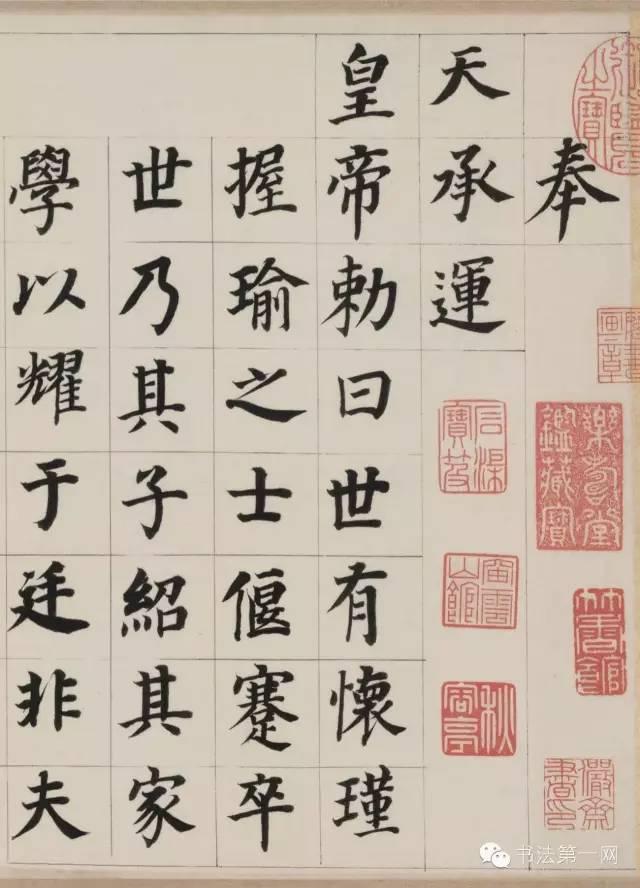 奉
天承運
皇帝勅曰世有懷瑾
握瑜之士偃蹇卒
世乃其子紹其家
學以耀于廷非夫
樂壽堂鑑藏寶
竹書館
书法第一网